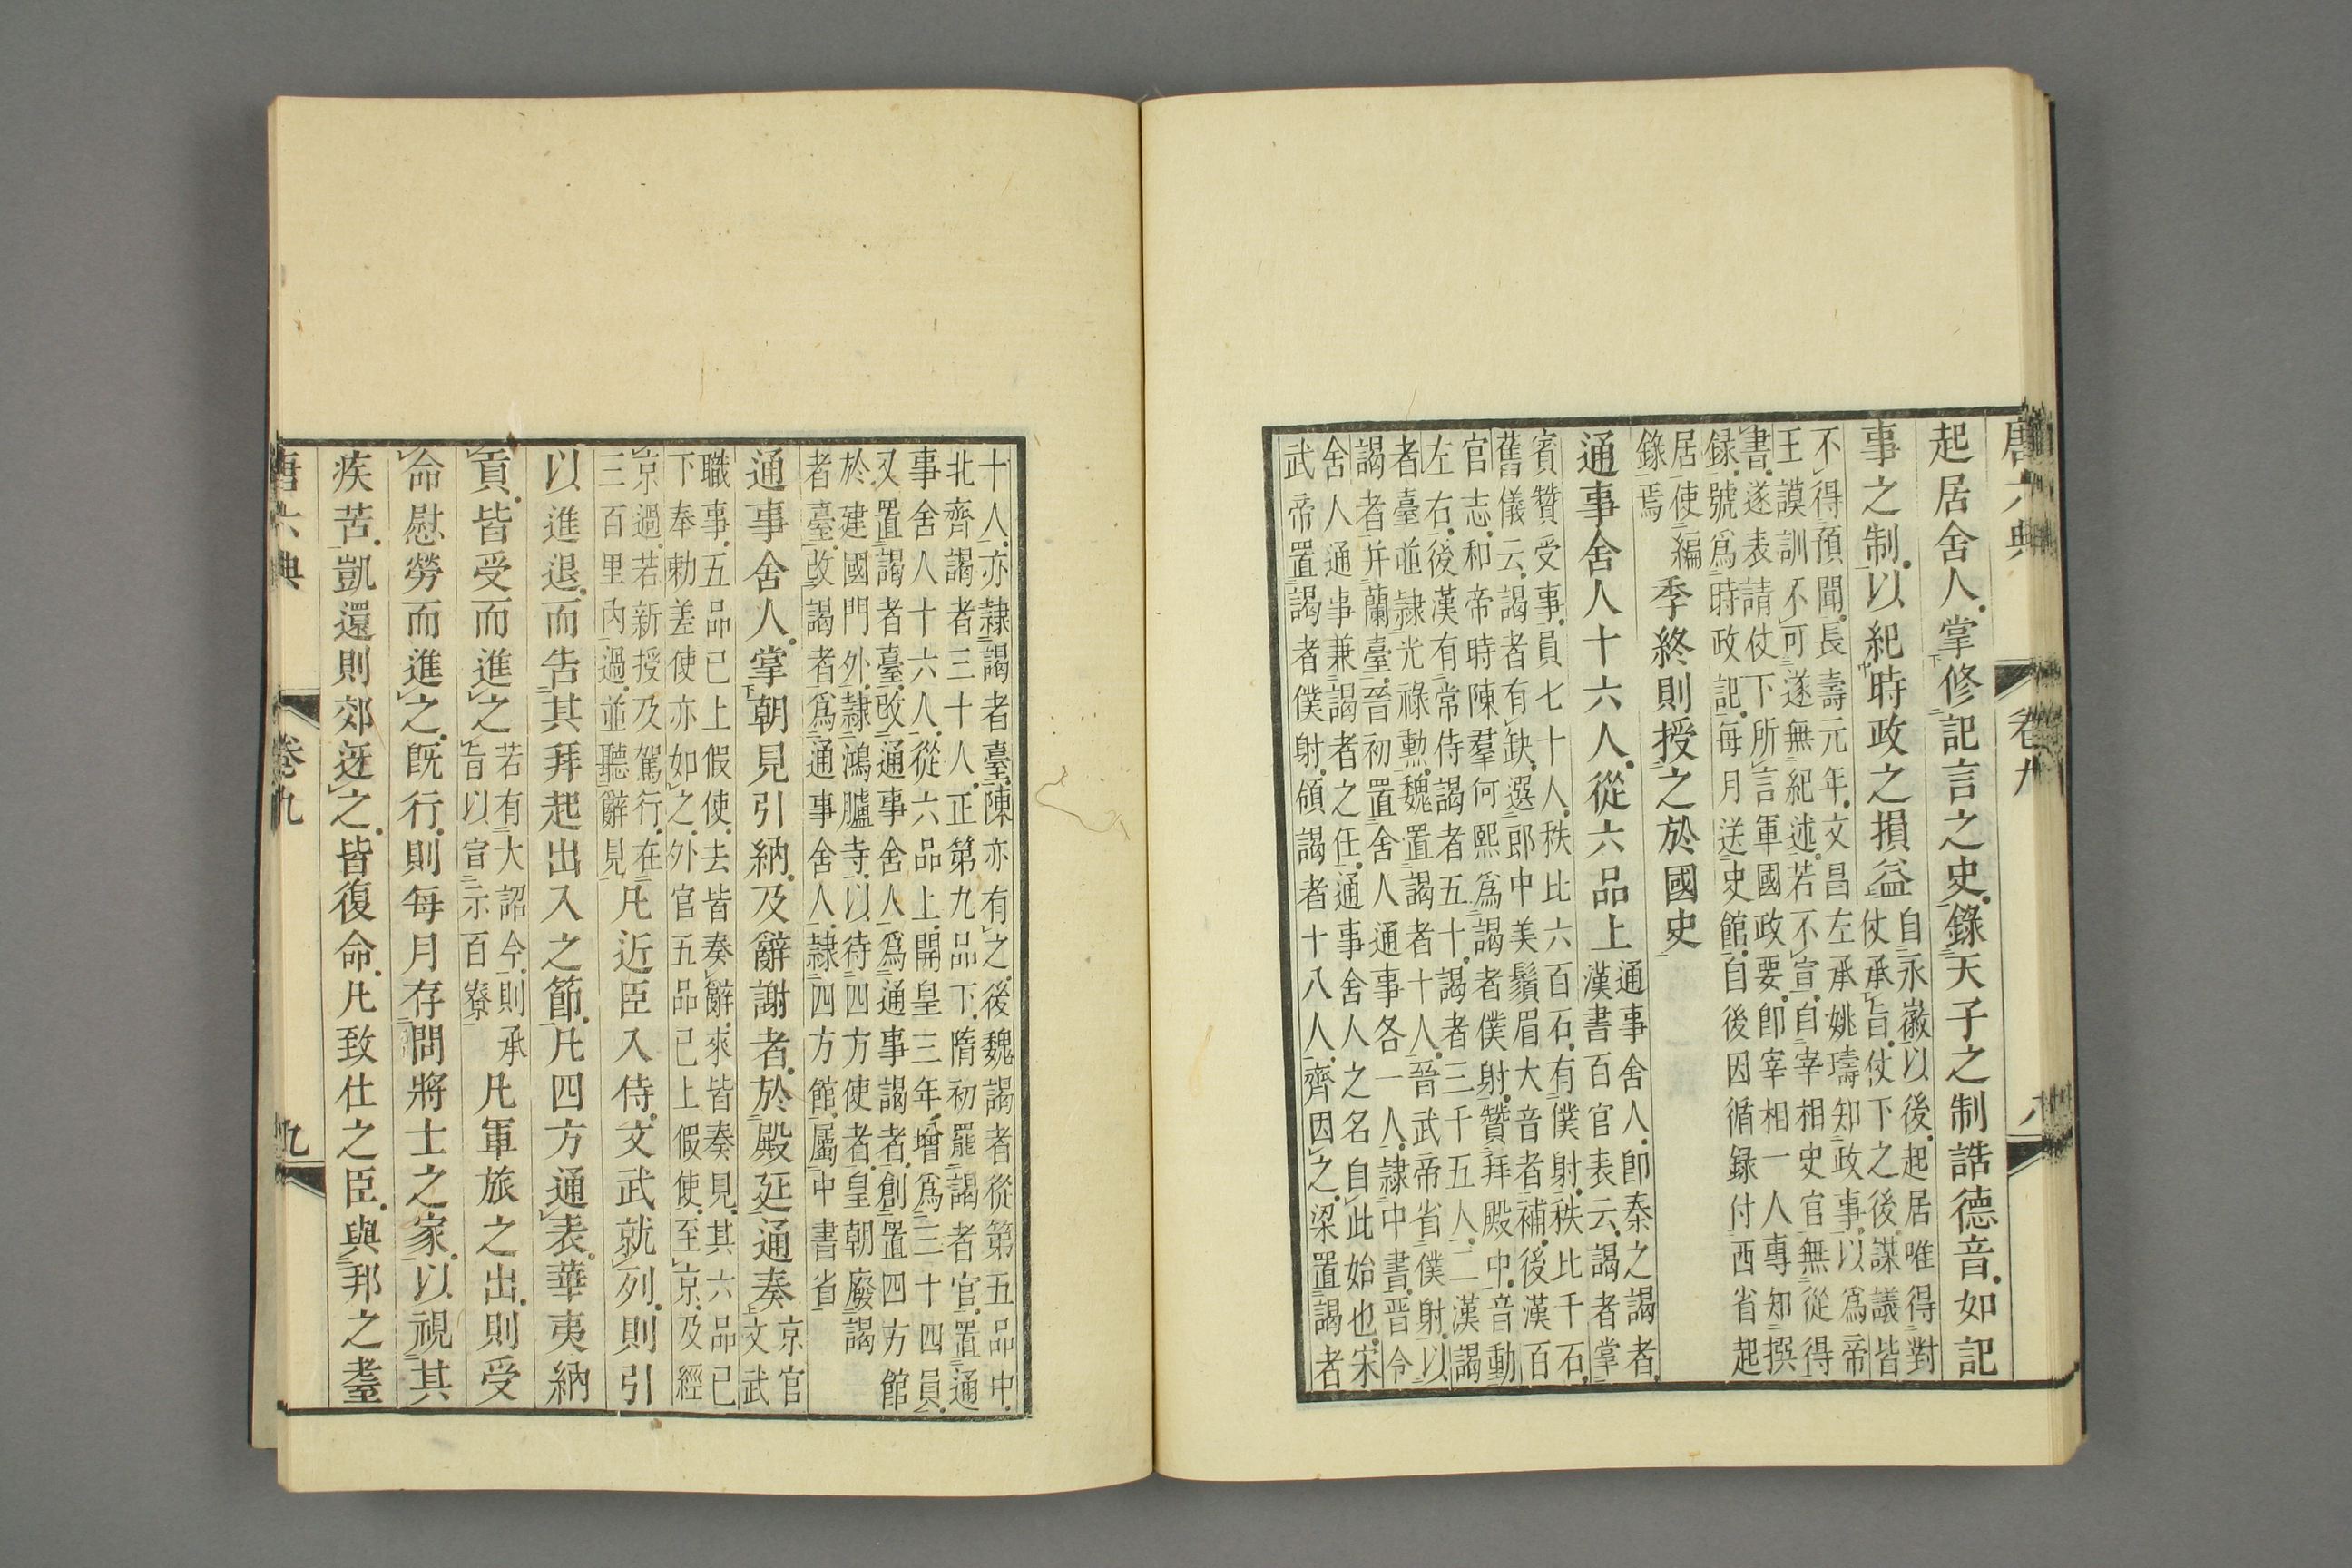 唐六典 卷九 八
起居舍人掌修記言之史錄天子之制誥德音如記
事之制以紀時政之損益自永徽以後起居唯得對
仗承旨仗下之後謀議皆
不得預聞長壽元年文昌左丞姚璹知政事以爲帝
王謨訓不可遂無紀述若不宣自宰相史官無從得
書遂表請仗下所言軍國政要即宰相一人專知撰
録號爲時政記每月送史館自後因循録付西省起
居使編
錄焉
季終則授之於國史
通事舍人十六人從六品上通事舍人即秦之謁者
漢書百官表云謁者掌
賓贊受事員七十人秩比六百石有僕射秩比千石
舊儀云謁者有缺選郎中美鬚眉大音者補後漢百
官志和帝時陳羣何熙爲謁者僕射贊拜殿中音動
左右後漢有常侍謁者五十謁者三千五人二漢謁
者臺並隷光祿勳魏置謁者十人晉武帝省僕射以
謁者并蘭臺晉初置舍人通事各一人隷中書晋令
舍人通事兼謁者之任通事舍人之名自此始也宋
武帝置謁者僕射領謁者十八人齊因之梁置謁者
十人亦隷謁者臺陳亦有之後魏謁者從第五品中
北齊謁者三十人正第九品下隋初罷謁者官置通
事舍人十六人從六品上開皇三年增爲三十四員
又置謁者臺改通事舍人爲通事謁者創置四方館
於建國門外隷鴻臚寺以待四方使者皇朝廢謁
者臺改謁者爲通事舍人隷四方館屬中書省
通事舍人掌朝見引納及辭謝者於殿廷通奏京官
文武
職事五品已上假使去皆奏辭來皆奏見其六品已
下奉勅差使亦如之外官五品已上假使至京及經
京過若新授及駕行在
三百里內過並聽辭見
凡近臣入侍文武就列則引
以進退而告其拜起出入之節凡四方通表華夷納
貢皆受而進之若有大詔令則承
旨以宣示百寮
凡軍旅之出則受
命慰勞而進之旣行則每月存問將士之家以視其
疾苦凱還則郊迓之皆復命凡致仕之臣與邦之耋
唐六典 卷九 九